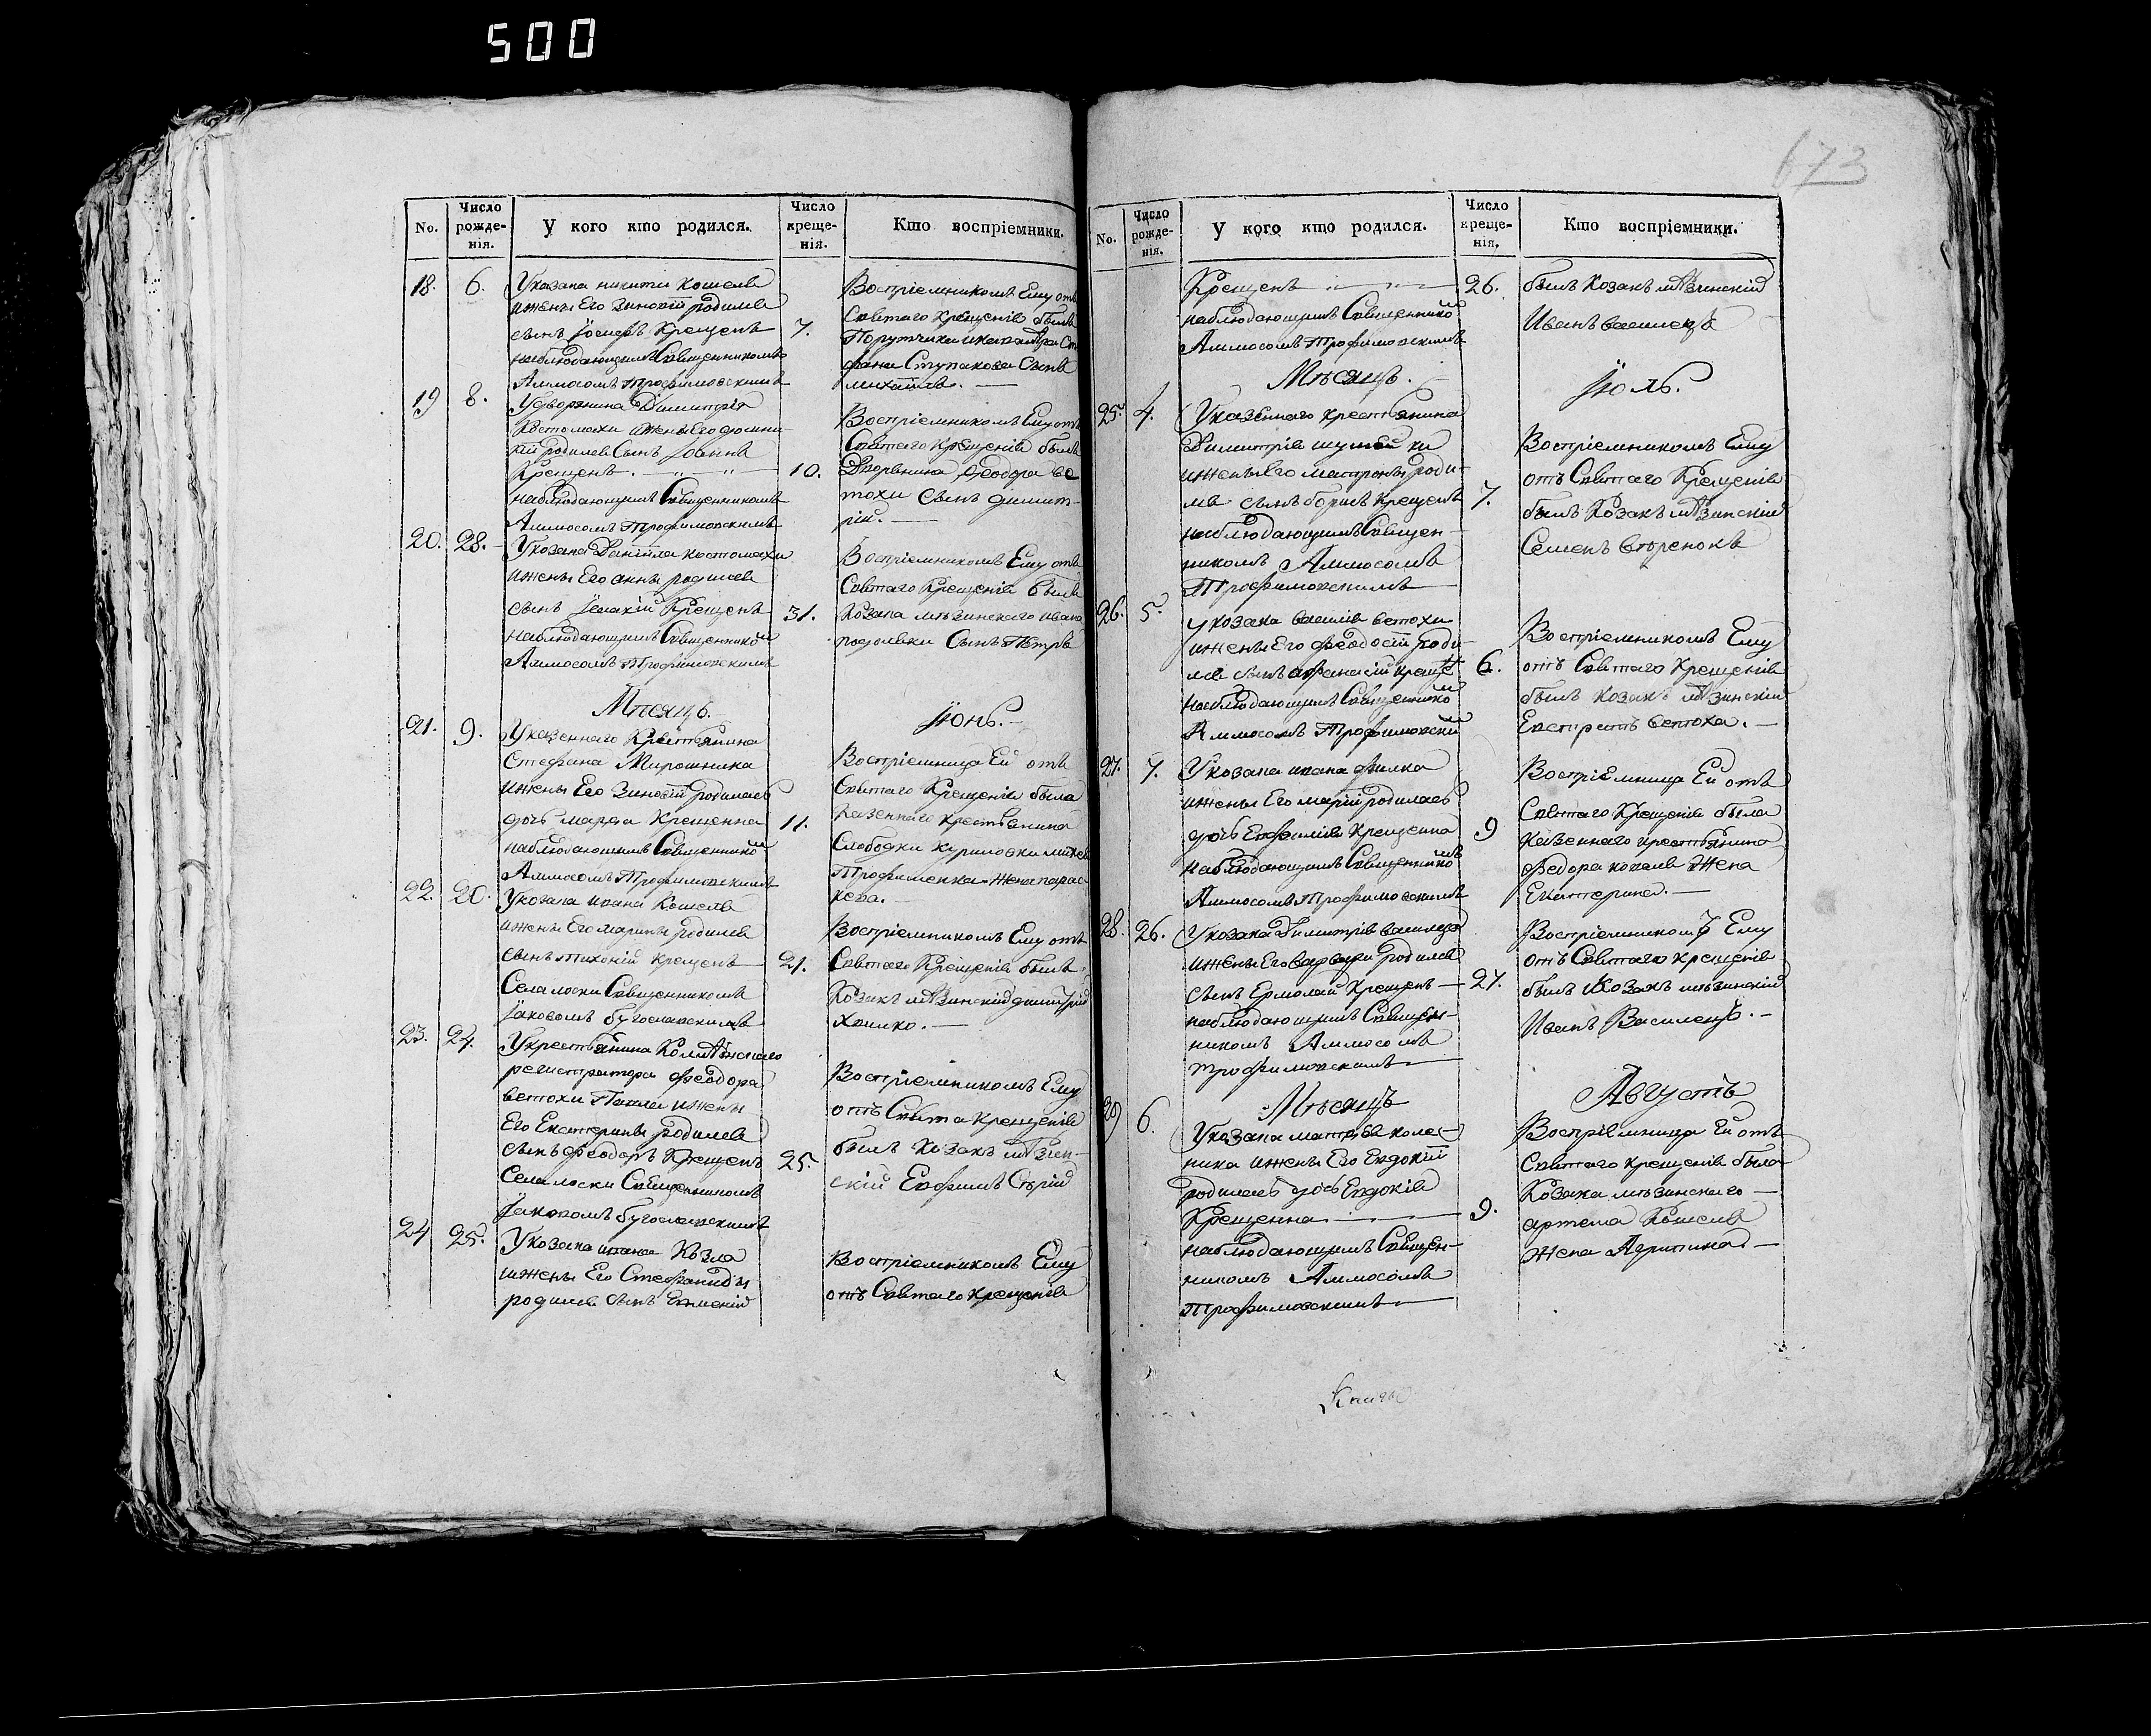 500
673
No.
Число рожде-нія.
У кого кто родился.
Число креще-нія.
Кто воспріемники.
18. 6. Указака никити Кошеля
ижены Его Зиновіи родился
сынъ Іосифъ Крещенъ 7.
наблюдающимъ Священникомъ
Аммосомъ Трофимовскимъ
Воспріемникомъ Ему отъ
Святаго Крещенія былъ
Порутчика
фана Ступакова Сынъ
михаилъ.
19 8. Удворянина Димитрія
Костомахи ижены Его домни-
кіи родился Сынъ Іоаннъ
Крещенъ. 10.
наблюдающимъ Священникомъ
Аммосомъ Трофимовскимъ
Воспріемникомъ Ему отъ
Святаго Крещенія былъ
Дворянина Феодора ве
тохи Сынъ димит-
рій.
20. 28. Укозака Даніила костомахи
ижены Его анны родился
сынъ Крещенъ 31.
наблюдающимъ Священникомъ
Аммосомъ Трофимовскимъ
Воспріемникомъ Ему отъ
Святаго Крещенія былъ
Козака мѣзинского ивана
Сынъ Петръ
Мѣсяцъ. Іюнь.
21. 9. Указенного Крестянина
Стефана Мирошника
ижены Его Зиновіи родилась
дочъ марфа Крещенна 11.
наблюдающимъ Священникомъ
Аммосомъ Трофимовскимъ
Воспріемница Ей отъ
Святаго Крещенія была
казенного крестьянина
Слободки куриловки
Трофименка Жена парас-
кева.
22. 20. Укозака ивана Кошеля
ижены Его марины родился
сынъ тихоній крещенъ 21.
Села лоски Священникомъ
Іаковомъ бугославскимъ
Воспріемникомъ Ему отъ
Святаго Крещенія былъ
Козакъ мѣзинскій димитрій
Хомко.
23. 24. Укрестьянина Колѣжского
регистратора Феодора
ветохи Павла ижены
Его Екатерины родился
сынъ Феодоръ Крещенъ 25.
Села лоски Священникомъ
Іаковомъ бугославскимъ
Воспріемникомъ Ему
отъ Свята крещенія
былъ Козакъ мѣзин-
скій Евфимъ Сѣрій
24 25. Укозака ивана Козла
ижены Его Стефаниды
родился сынъ Евмений
Воспріемникомъ Ему
отъ Святаго Крещенія
No.
Число рожде-нія.
У кого кто родился.
Число креще-нія.
Кто воспріемники.
Крещенъ 26.
наблюдающимъ Священникомъ
Аммосомъ Трофимовскимъ
былъ Козакъ мѣзинскій
Иванъ василецъ
Мѣсяцъ. Іюль.
25. 4. Указенного крестьянина
Димитрія шумейки
ижены Его матроны роди-
лся сынъ борисъ Крещенъ 7.
наблюдающимъ Священ-
никомъ Аммосомъ
Трофимовскимъ
Воспріемникомъ Ему
отъ Святаго Крещенія
былъ Козакъ мѣзинскій
Семенъ
26. 5. Укозака василія ветохи
ижены Его Феодосіи роди
лся сынъ афанасій крещенъ 6.
наблюдающимъ Священникомъ
Аммосомъ Трофимовскимъ
Воспріемникомъ Ему
отъ Святаго Крещенія
былъ козакъ мѣзинскій
Евстратъ ветоха.
27. 7. Укозака ивана филка
ижены Его маріи родилась
дочъ Евфимія Крещенна 9
наблюдающимъ Священникомъ
Аммосомъ Трофимовскимъ
Воспріемница Ей отъ
Святаго Крещенія была
казенного крестьянина
Федора коваля Жена
Екатерина.
28. 26. Укозака Димитрія василца
ижены Его варвари Родился
сынъ Ермолай Крещенъ 27.
наблюдающимъ Священ-
никомъ Аммосомъ
трофимовскимъ
Воспріемникомъ Ему
отъ Святаго крещенія
былъ Козакъ мѣзинскій
Иванъ Василецъ.
Мѣсяцъ Августъ
29 6. Укозака матвѣя колес-
ника ижены Его Евдокіи
родилась дочь Евдокія
Крещенна 9.
наблюдающимъ Священ-
никомъ Аммосомъ
Трофимовскимъ
Воспріемница Ей отъ
Святаго крещенія была
Козака мѣзинского
артема Кошеля
жена Агрипина.